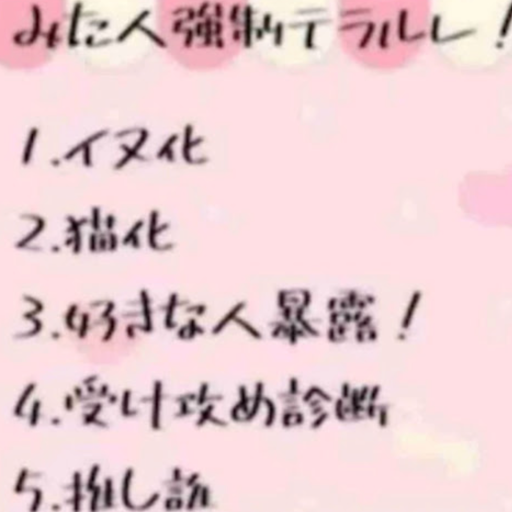 みた人強制テラルレ！
1.イヌ化
2.猫化
3.好きな人暴露！
4.受け攻め診断
5.推し語